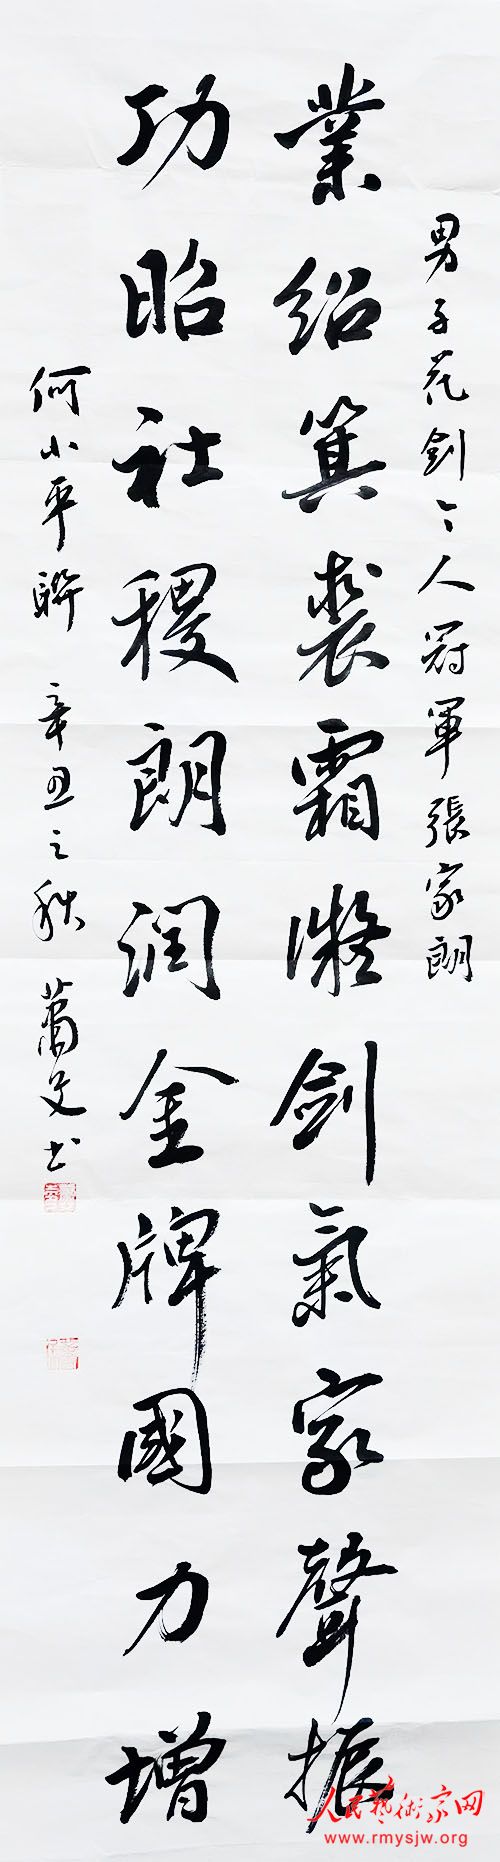 男子花剑个人冠軍張家朗
業紹箕裘霜凝劍氣家聲振
功昭社稷朗润金牌國力增
何小平聯 辛丑之秋 蕭文书
人民藝術家网
www.rmysjw.org